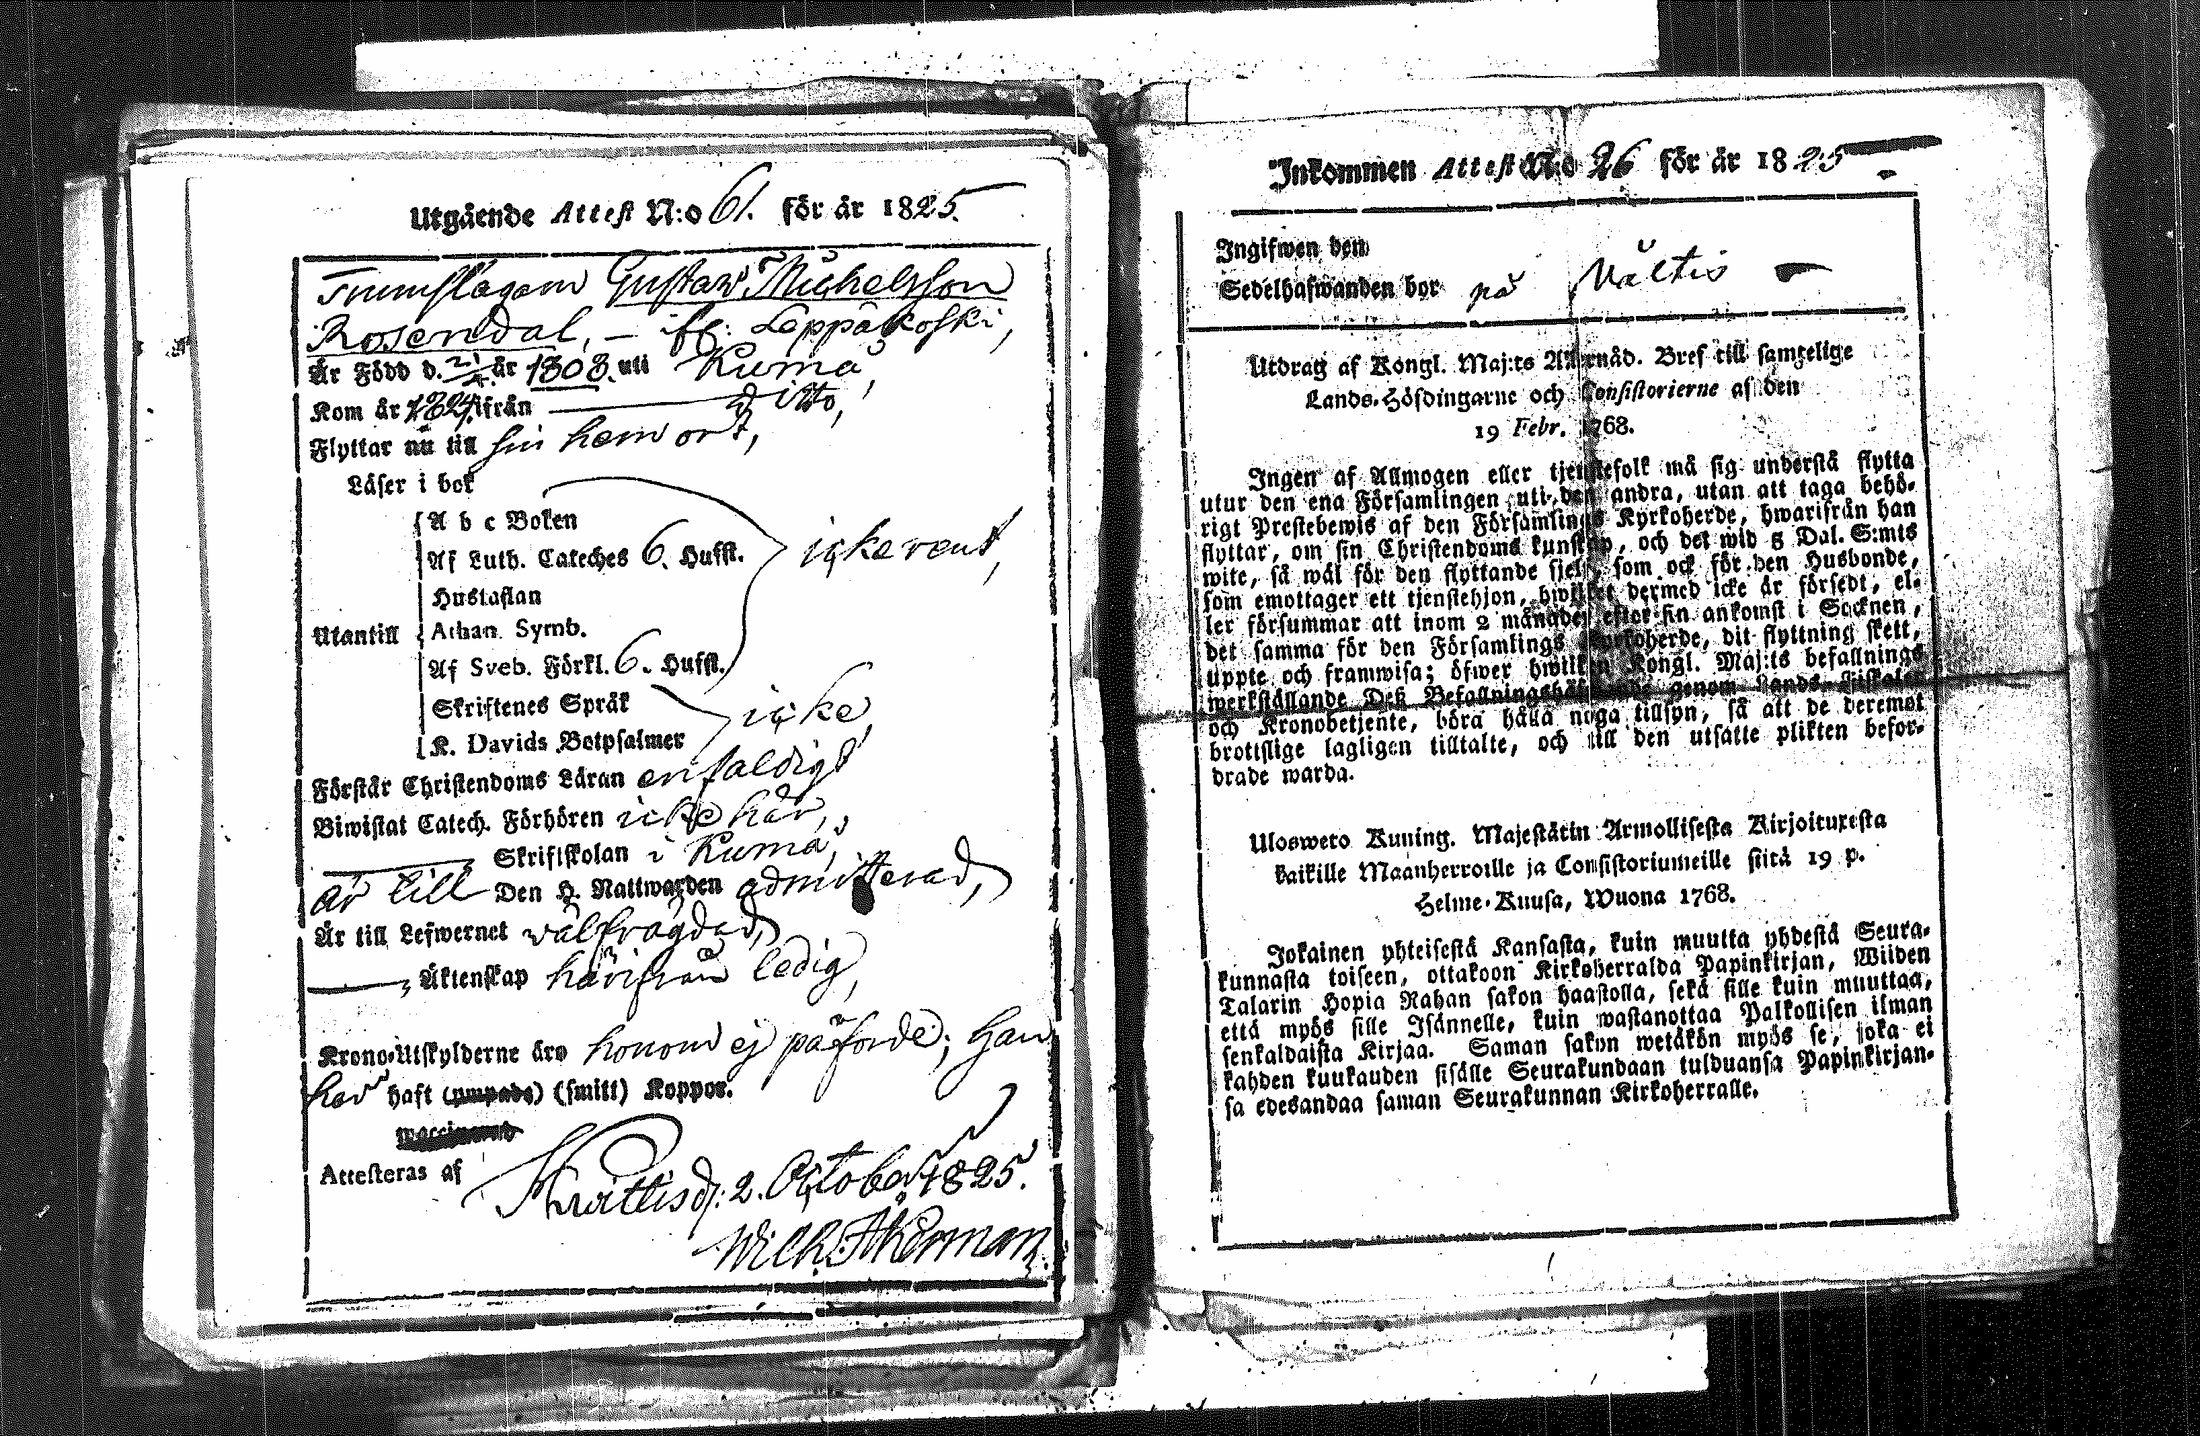 Utgående Attest N:o 61. för år 1825.
Trumslagarn Gustaw Michelsson
Rosendal, – ifr: Leppäkoski,
Är Född d. 21/4 år 1808. uti Kumå
Kom år 1824. ifrån ditto,
Flyttar nu till sin hemort,
Läser i bok
A b c Boken
Af Luth. Cateches 6. Hufst. icke rent,
Hustaflan
Utantill Athan. Symb.
Af Sveb. Förkl. 6. Hufst.
Skriftenes Språk icke
K. Davids Botpsalmer
Förstår Christendoms Läran enfaldigt
Biwistat Catech. Förhören icke här,
Skriftskolan i Kumå,
är till Den H. Nattwarden admitterad,
Är till Lefwernet wälfrägdad,
Äktenskap härifrån ledig,
Krono-Utskylderne äro honom ej påförde; Han
har haft (ympade) (smitt) Koppor.
waccinerad
Attesteras af
d. 2. October 1825.
Wilh. Åkerman.
Inkommen Attest N:o 26 för år 1825
Ingifwen den
Sedelhafwanden bor på Wältis
Utdrag af Kongl. Maj:ts Allernåd. Bref till samtelige
Lands-Höfdingarne och Consistorierne af den
19 Febr. 1768.
Ingen af Allmogen eller tjenstefolk må sig understå flytta
utur den ena Församlingen uti den andra, utan att taga behö-
rigt Prestebewis af den Församlings Kyrkoherde, hwarifrån han
flyttar, om sin Christendoms kunskap, och det wid 5 Dal. S:mts
wite, så wäl för den flyttande sjelf, som ock för den Husbonde,
som emottager ett tjenstehjon, hwilket dermed icke är försedt, el-
ler försummar att inom 2 månader efter sin ankomst i Socknen,
det samma för den Församlings Kyrkoherde, dit flyttning skett,
uppte och framwisa; öfwer hwilken Kongl. Maj:ts befallnings
werkställande Deß Befallningshafwande genom Lands-Fiskaler
och Kronobetjente, böra hålla noga tillsyn, så att de deremot
brottslige lagligen tilltalte, och till den utsatte plikten befor-
drade warda.
Ulosweto Kuning. Majestätin Armollisesta Kirjoituxesta
kaikille Maanherroille ja Consistoriumeille siitä 19 p.
Helme-Kuusa, Wuona 1768.
Jokainen yhteisestä Kansasta, kuin muutta yhdestä Seura-
kunnasta toiseen, ottakoon Kirkoherralda Papinkirjan, Wiiden
Talarin Hopia Rahan sakon haastolla, sekä sille kuin muuttaa,
että myös sille Isännelle, kuin wastanottaa Palkollisen ilman
senkaldaista Kirjaa. Saman sakon wetäkön myös se, joka ei
kahden kuukauden sisälle Seurakundaan tulduansa Papinkirjan-
sa edesandaa saman Seurakunnan Kirkoherralle.